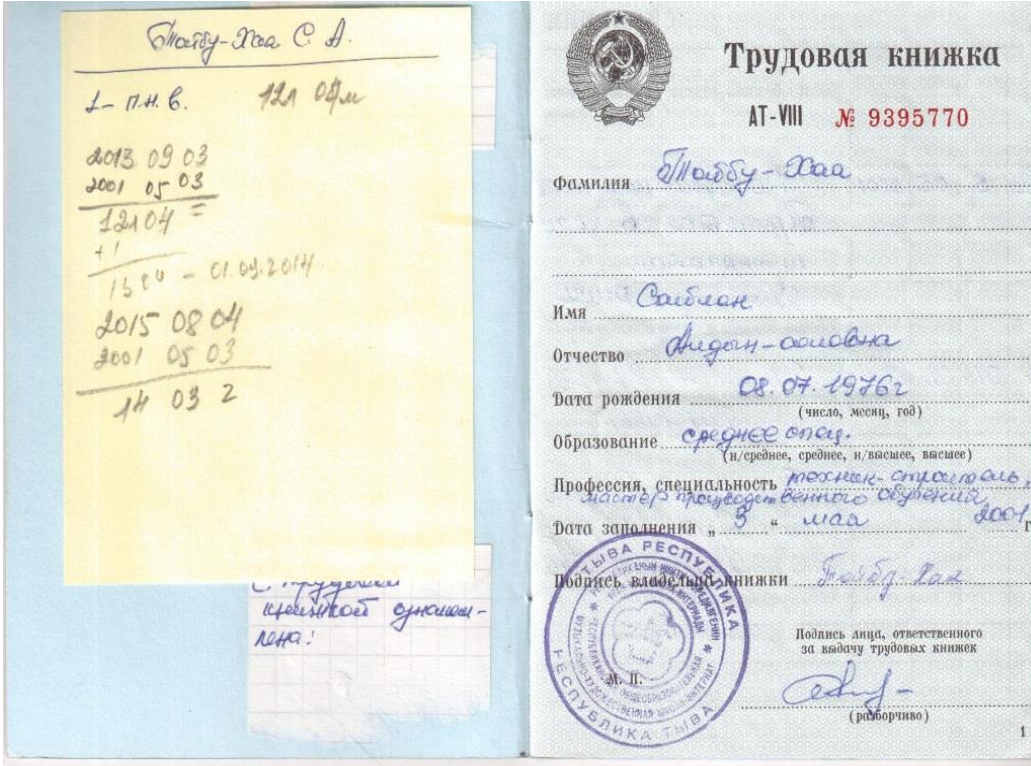 Тойбу-Хаа С. А.
1-п.н.в. 12л 04м
2013 09 03
2001 05 03
12л 04 =
+1
13 04 - 01.09.2014
2015 08 04
2001 05 03
14 03 2
С трудовой
книжкой ознаком-
лена:
Трудовая книжка
АТ-VIII № 9395770
Фамилия Тойбу-Хаа
Имя Сайлан
Отчество Алдын-ооловна
Дата рождения 08.07.1976г
(число, месяц, год)
Образование среднее спец.
(н/среднее, среднее, н/высшее, высшее)
Профессия, специальность техник-строитель,
мастер производственного обучения
Дата заполнения „ 3 “ мая 2001 г
Подпись владельца книжки Тойбу-Хаа
Подпись лица, ответственного
за выдачу трудовых книжек
М. П.
(разборчиво)
ТЫВА РЕСПУБЛИКА
РЕСПУБЛИКА ТЫВА
1